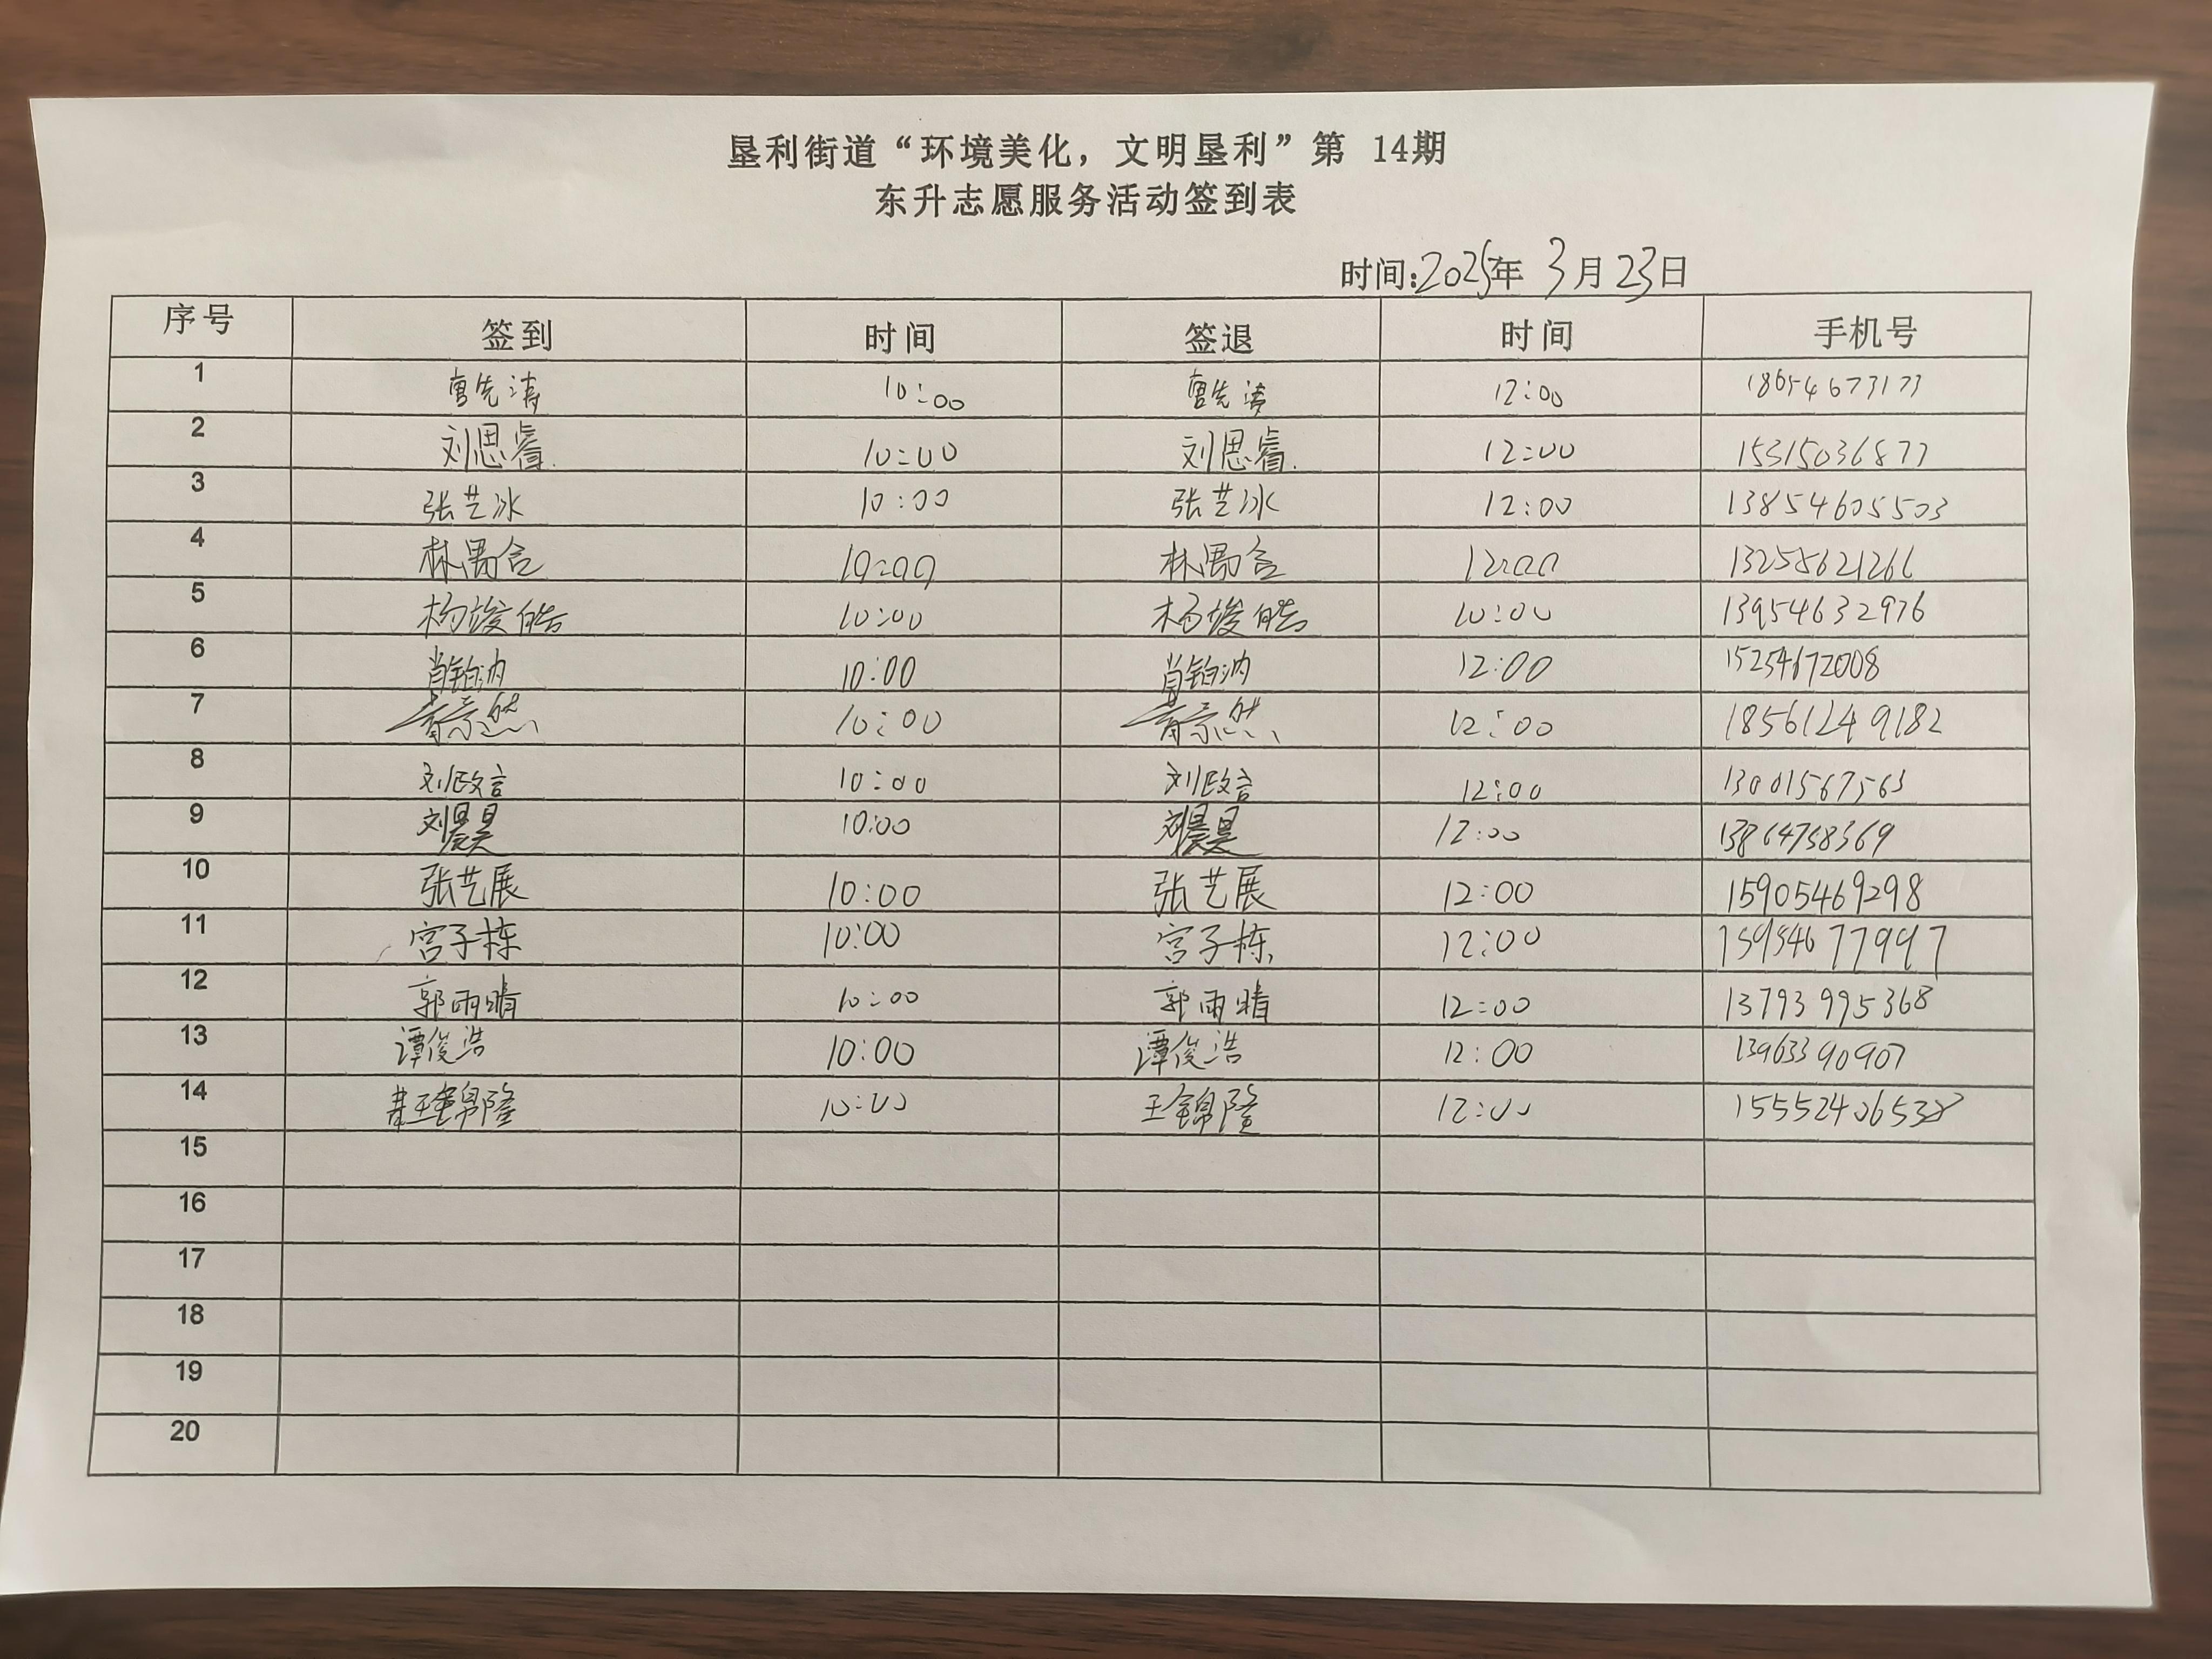 垦利街道“环境美化，文明垦利”第 14期
东升志愿服务活动签到表
时间:2025年 3月23日
序号 签到 时间 签退 时间 手机号
1 曹先涛 10:00 曹先涛 12:00 18654673173
2 刘思睿 10:00 刘思睿 12:00 15315036877
3 张艺冰 10:00 张艺冰 12:00 13854605503
4 林禹含 10:00 林禹含 12:00 13258621266
5 杨峻皓 10:00 杨峻皓 10:00 13954632976
6 肖铂汭 10:00 肖铂汭 12:00 15254672008
7 10:00 12:00 18561249182
8 刘政言 10:00 刘政言 12:00 13001567563
9 刘晨昊 10:00 刘晨昊 12:00 13864758369
10 张艺展 10:00 张艺展 12:00 15905469298
11 宫子栋 10:00 宫子栋 12:00 15954677997
12 郭雨晴 10:00 郭雨晴 12:00 13793995368
13 谭俊浩 10:00 谭俊浩 12:00 13963390907
14 王锦隆 10:00 王锦隆 12:00
15
16
17
18
19
20